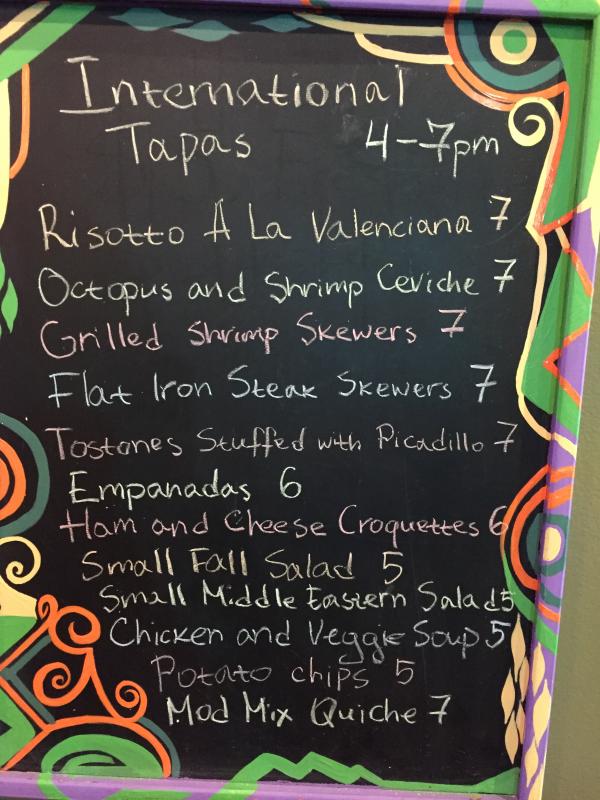 International
Tapas 4-7pm
Risotto A La Valenciana 7
Octopus and Shrimp Ceviche 7
Grilled Shrimp Skewers 7
Flat Iron Steak Skewers 7
Tostones Stuffed with Picadillo 7
Empanadas 6
Ham and Cheese Croquettes 6
Small Fall Salad 5
Small Middle Eastern Salad 5
Chicken and Veggie Soup 5
Potato chips 5
Mod Mix Quiche 7